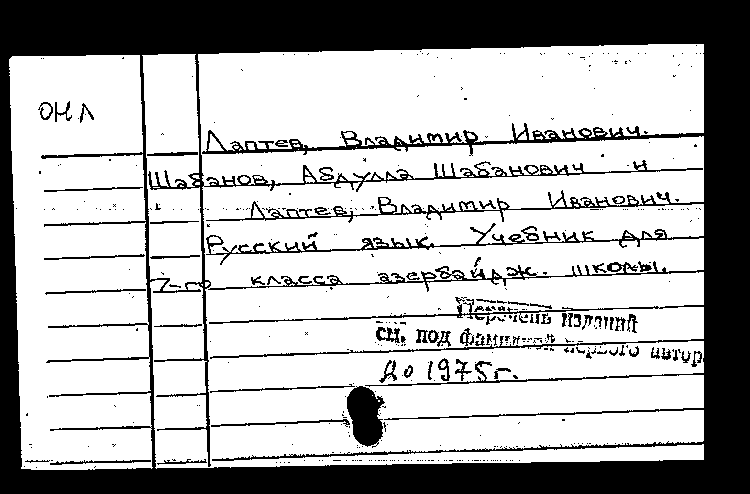 ОНЛ
Лаптев, Владимир Иванович.
Шабанов, Абдулла Шабанович и
Лаптев, Владимир Иванович.
Русский язык. Учебник для
7-го класса азербайдж. школы.
Перечень изданий
см. под фамилией первого автор
до 1975г.